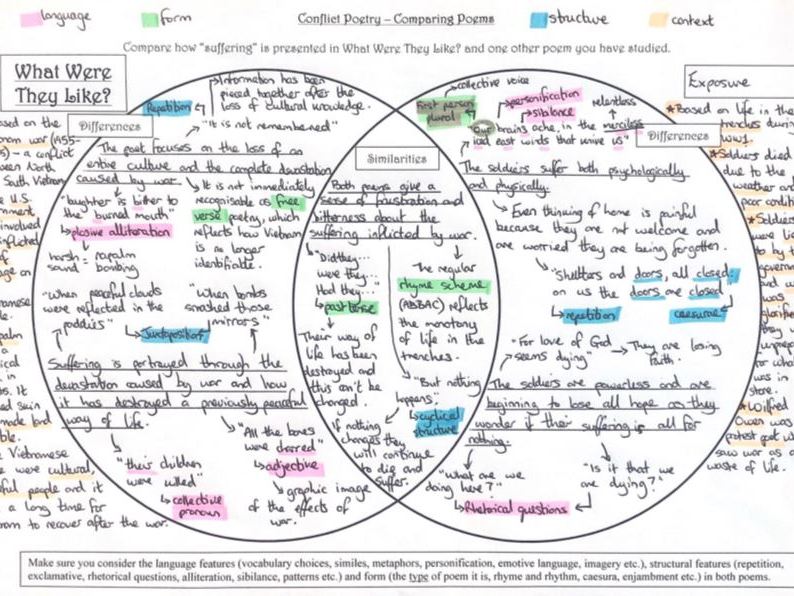 language
form
Conflict Poetry – Comparing Poems
structure
context
Compare how "suffering" is presented in What Were They Like? and one other poem you have studied.
What Were
They Like?
Differences
Repetition
Information has been
pieced together after the
loss of cultural knowledge.
"It is not remembered"
The poet focuses on the loss of an
entire culture and the complete devastation
caused by war.
"laughter is bitter to
the burned mouth"
plosive alliteration
harsh = napalm
sound = bombing
It is not immediately
recognisable as free
verse poetry, which
reflects how Vietnam
is no longer
identifiable.
"When peaceful clouds
were reflected in the
paddies"
"When bombs
smashed those
mirrors"
Juxtaposition
Suffering is portrayed through the
devastation caused by war and how
it has destroyed a previously peaceful
way of life.
"their children
were killed"
collective
pronoun
"All the bones
were charred"
adjective
graphic image
of the effects of
war.
Similarities
Both poems give a
sense of frustration and
bitterness about the
suffering inflicted by war.
"Did they...
were they...
Had they..."
past tense
Their way of
life has been
destroyed and
this can't be
changed.
The regular
rhyme scheme
(ABBAC) reflects
the monotony
of life in the
trenches.
"But nothing
happens"
cyclical
structure
If nothing
changes they
will continue
to die and
suffer.
Exposure
Differences
collective voice
First person
plural
personification
sibilance
relentless
"Our brains ache, in the merciless
iced east winds that knive us"
The soldiers suffer both psychologically
and physically.
Even thinking of home is painful
because they are not welcome and
are worried they are being forgotten.
"Shutters and doors, all closed:
on us the doors are closed"
repetition
caesura
"For love of God
seems dying"
They are losing
faith.
The soldiers are powerless and are
beginning to lose all hope as they
wonder if their suffering is all for
nothing.
"What are we
doing here?"
"Is it that we
are dying?"
Rhetorical questions
Based on life in the
trenches during
WW1.
Soldiers died
due to the
weather and
poor conditions
Soldiers
Wilfred
Owen was
protest poet
saw war as a
waste of life.
Make sure you consider the language features (vocabulary choices, similes, metaphors, personification, emotive language, imagery etc.), structural features (repetition,
exclamative, rhetorical questions, alliteration, sibilance, patterns etc.) and form (the type of poem it is, rhyme and rhythm, caesura, enjambment etc.) in both poems.